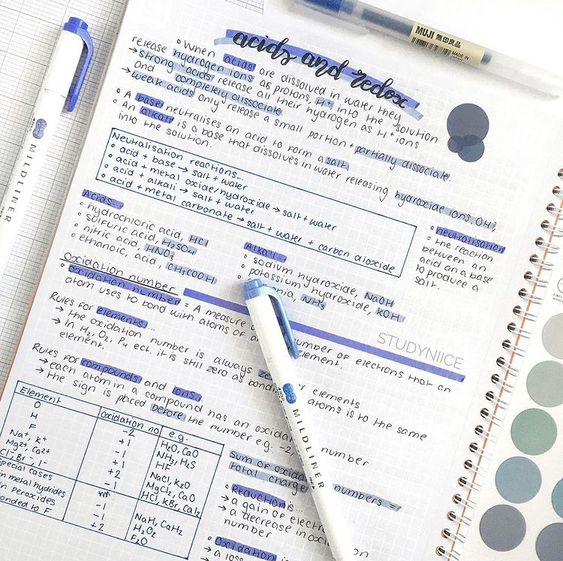 MUJI 無印良品
acids and redox
◦ When acids are dissolved in water they
release hydrogen ions as protons, H⁺, into the solution
→ strong acids release all their hydrogen as H⁺ ions
and completely dissociate
→ weak acids only release a small portion + partially dissociate
◦ A base neutralises an acid to form a salt
◦ An alkali is a base that dissolves in water releasing hydroxide ions, OH⁻,
into the solution.
Neutralisation reactions...
◦ acid + base → salt + water
◦ acid + metal oxide/hydroxide → salt + water
◦ acid + alkali → salt + water
◦ acid + metal carbonate → salt + water + carbon dioxide
◦ neutralisation
the reaction
between an
acid and a base
to produce a
salt.
Acids
◦ hydrochloric acid, HCl
◦ sulfuric acid, H₂SO₄
◦ nitric acid, HNO₃
◦ ethanoic acid, CH₃COOH
Alkali
◦ sodium hydroxide, NaOH
◦ potassium hydroxide, KOH
NH₃
Oxidation number
◦ Oxidation number = A measure of number of electrons that an
atom uses to bond with atoms of element.
STUDYNIICE
Rules for elements...
→ the oxidation number is always zero for elements
→ In H₂, O₂, P₄ ect. it is still zero as bonding atoms is to the same
element.
Rules for compounds and ions
→ each atom in a compound has an oxidation number
→ the sign is placed before the number e.g. -2,
Element oxidation no. e.g.
O -2 H₂O, CaO
H +1 NH₃, H₂S
F -1 HF
Na⁺, K⁺ +1 NaCl, K₂O
Mg²⁺, Ca²⁺ +2 MgCl₂, CaO
Cl⁻ Br⁻ I⁻ -1 HCl, KBr, CaI₂
special cases
in metal hydrides -1 NaH, CaH₂
in peroxides -1 H₂O₂
bonded to F +2 F₂O
Sum of oxidation numbers =
total charge
◦ Reduction is...
→ a gain of electrons
→ a decrease in oxidation
number
◦ Oxidation is
→ a loss
MILDLINER
MILDLINER